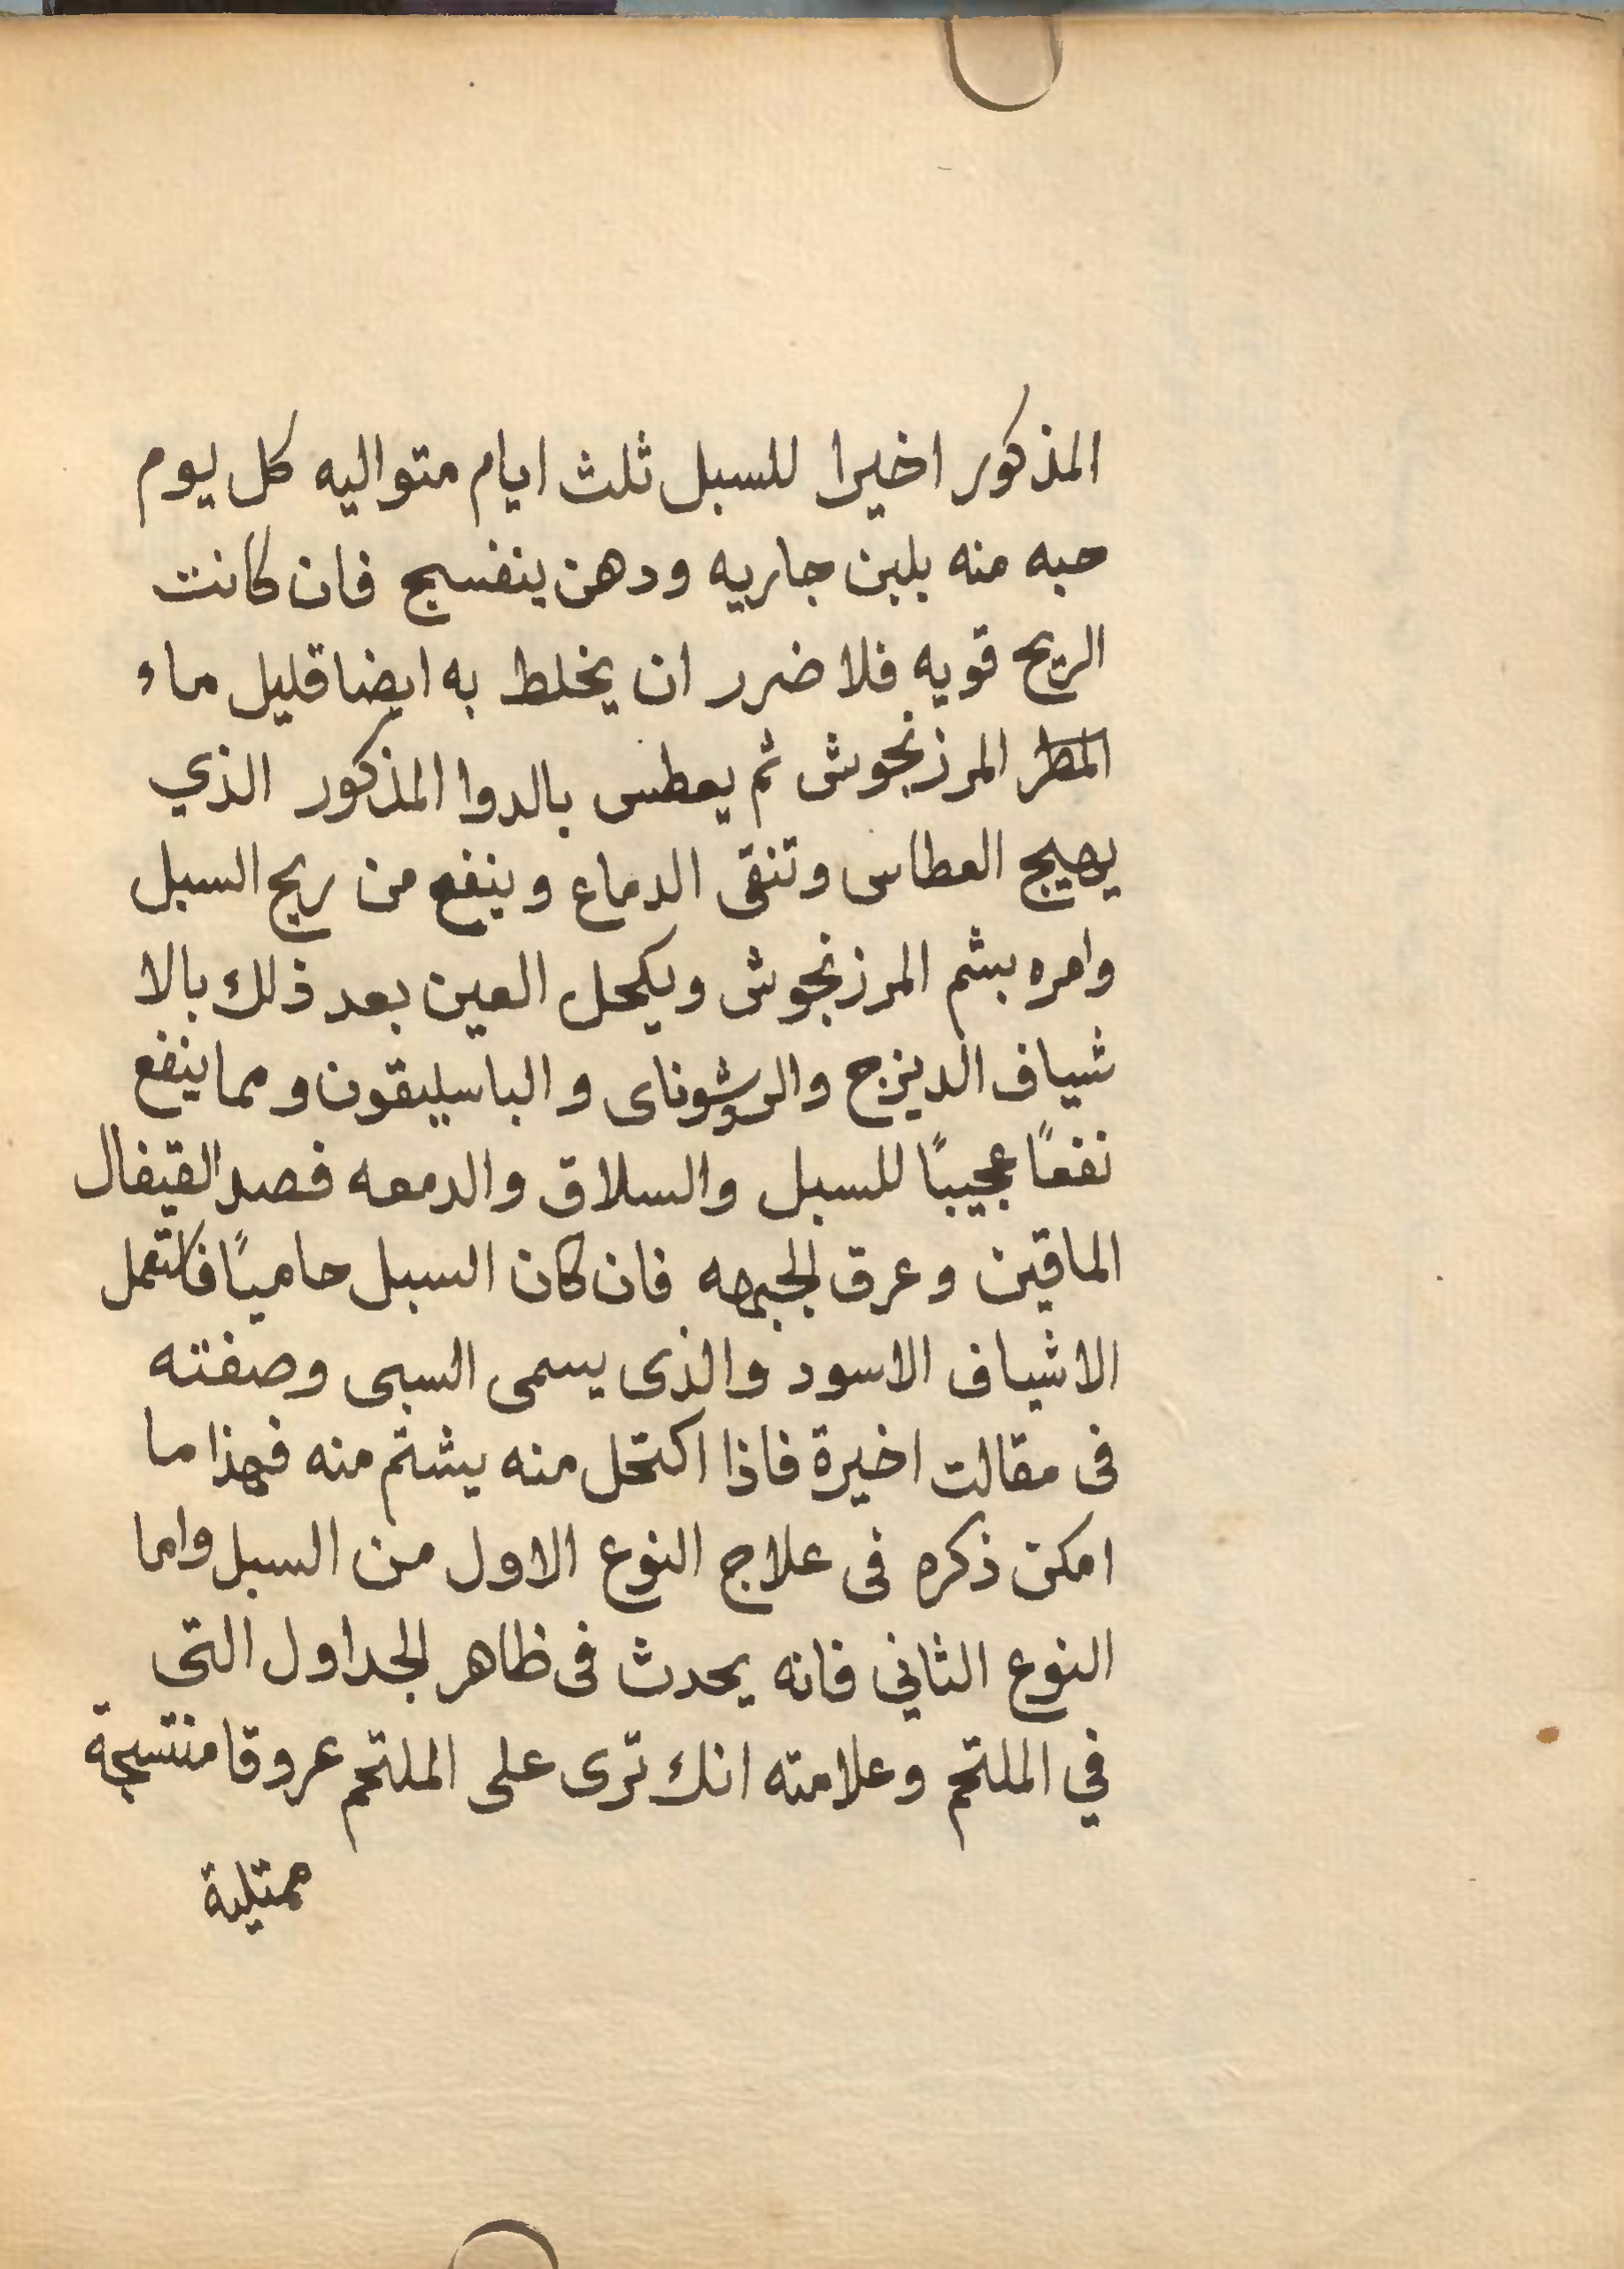 المذكور اخيرا للسبل ثلث ايام متواليه كل يوم
حبه منه بلبن جاريه ودهن بنفسج فان كانت
الريح قويه فلا ضرر ان يخلط به ايضا قليل ماء
المطر المرزنجوش ثم يعطس بالدوا المذكور الذي
يهيج العطاس وتنقى الدماع وينفع من ريح السبل
وامره بشم المرزنجوش ويكحل العين بعد ذلك بالا
شياف الديزج والروشوناى والباسليقون ومما ينفع
نفعًا عجيبًا للسبل والسلاق والدمعه فصد القيفال
الماقين وعرق الجبهه فان كان السبل حاميًا
الاشياف الاسود والذى يسمى السبى وصفته
فى مقالت اخيرة فاذا اكتحل منه يشتم منه فهذا ما
امكن ذكره فى علاج النوع الاول من السبل واما
النوع الثاني فانه يحدث فى ظاهر الجداول التى
في الملتحم وعلامته انك ترى على الملتحم عروقا منتسجة
ممتلية